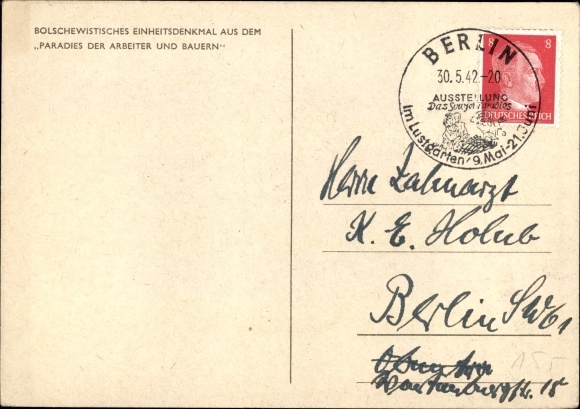 BOLSCHEWISTISCHES EINHEITSDENKMAL AUS DEM
„PARADIES DER ARBEITER UND BAUERN“
BERLIN
30.5.42.-20
AUSSTELLUNG
Das Sowjetparadies
im Lustgarten / 9. Mai - 21. Juni
8 8
DEUTSCHES REICH
Herrn Zahnarzt
K. E. Holub
Berlin SW 61
Wartenburgstr. 15
155